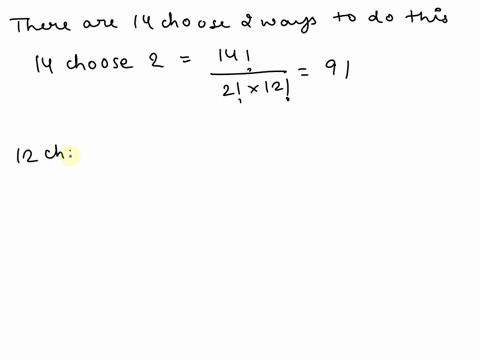 There are 14 choose 2 ways to do this
14 choose 2 = 14! / 2! × 12! = 91
12 ch